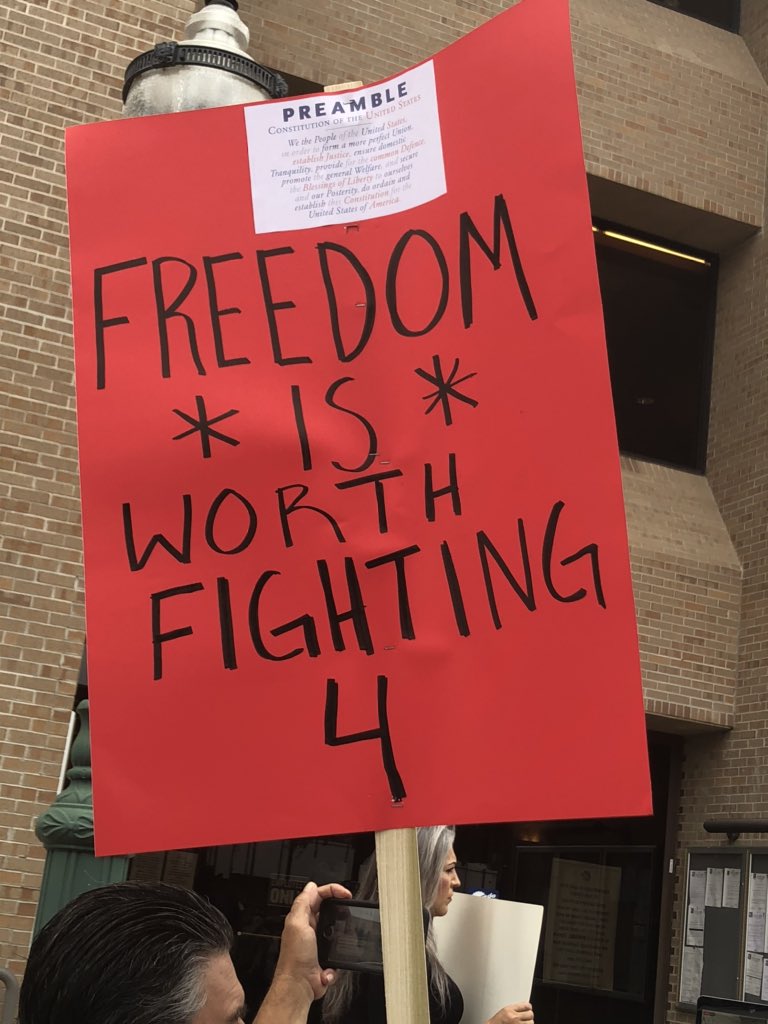 PREAMBLE
CONSTITUTION OF THE UNITED STATES
We the People of the United States,
in order to form a more perfect Union,
establish Justice, ensure domestic
Tranquility, provide for the common Defence,
promote the general Welfare, and secure
the Blessings of Liberty to ourselves
and our Posterity, do ordain and
establish this Constitution for the
United States of America.
FREEDOM
* IS *
WORTH
FIGHTING
4